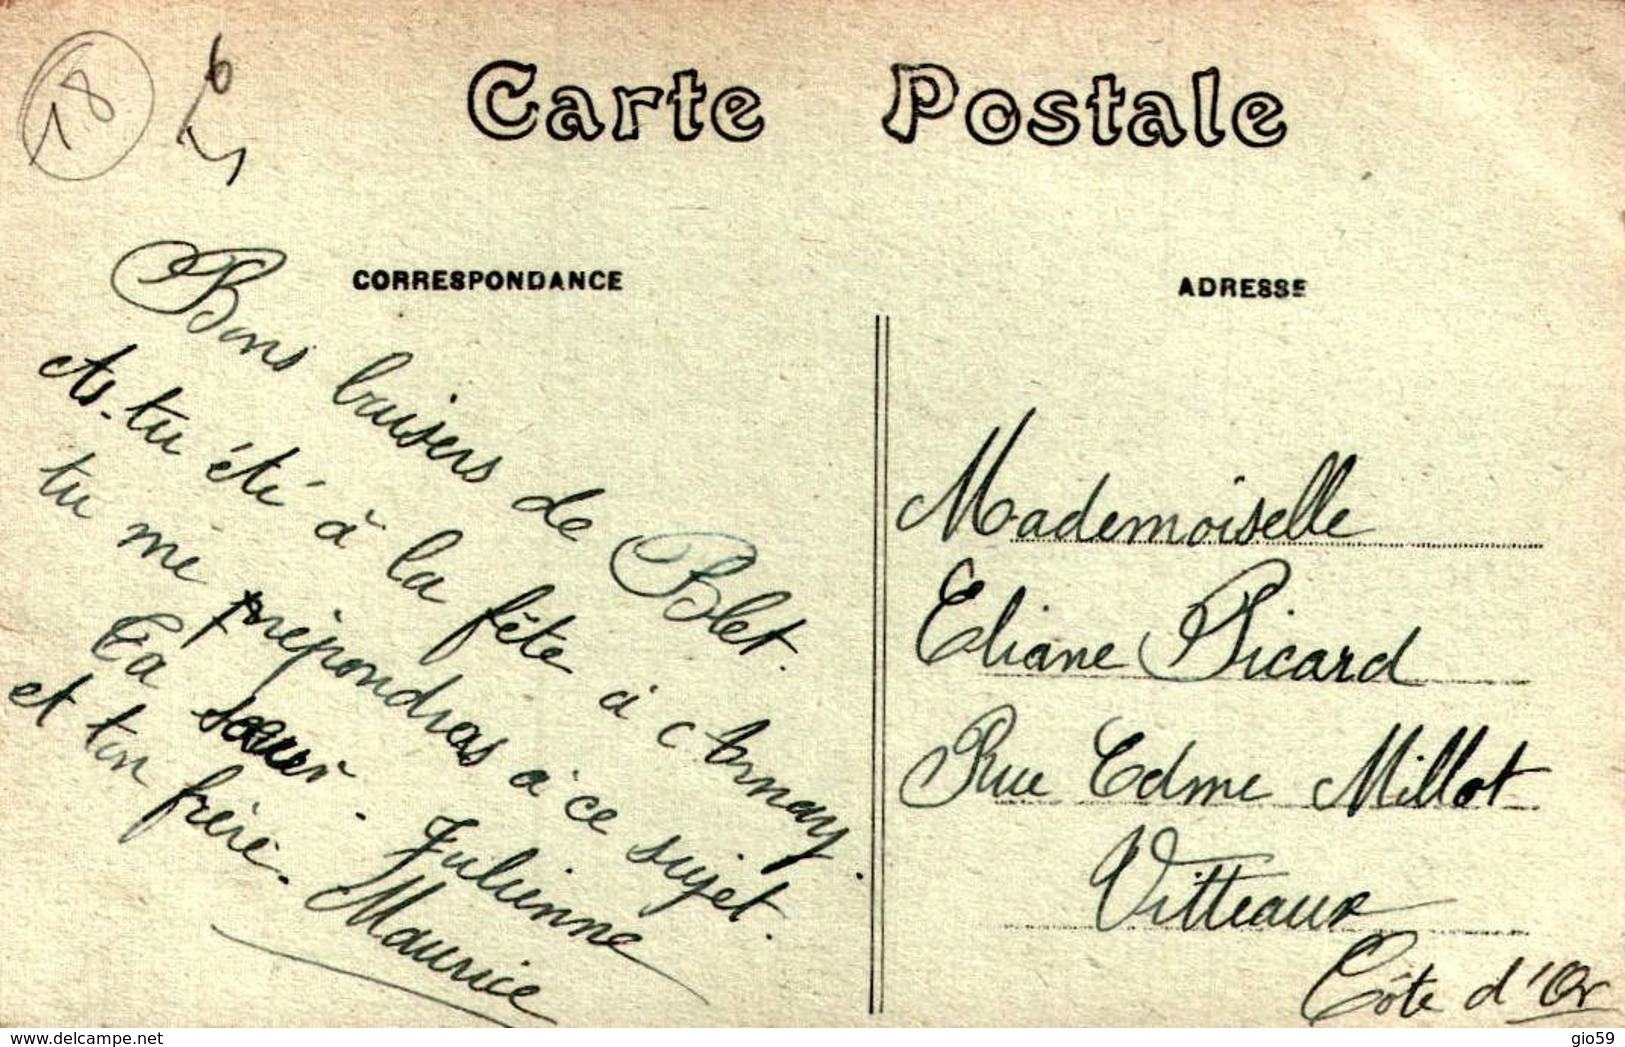 18
6
Carte Postale
CORRESPONDANCE
Bons baisers de Blet.
As-tu été à la fête à Arnay.
tu me répondras à ce sujet.
Ta sœur. Julienne
et ton frère. Maurice
ADRESSE
Mademoiselle
Eliane Picard
Rue Edme Millot
Vitteaux
Côte d'Or
delcampe.net
gio59